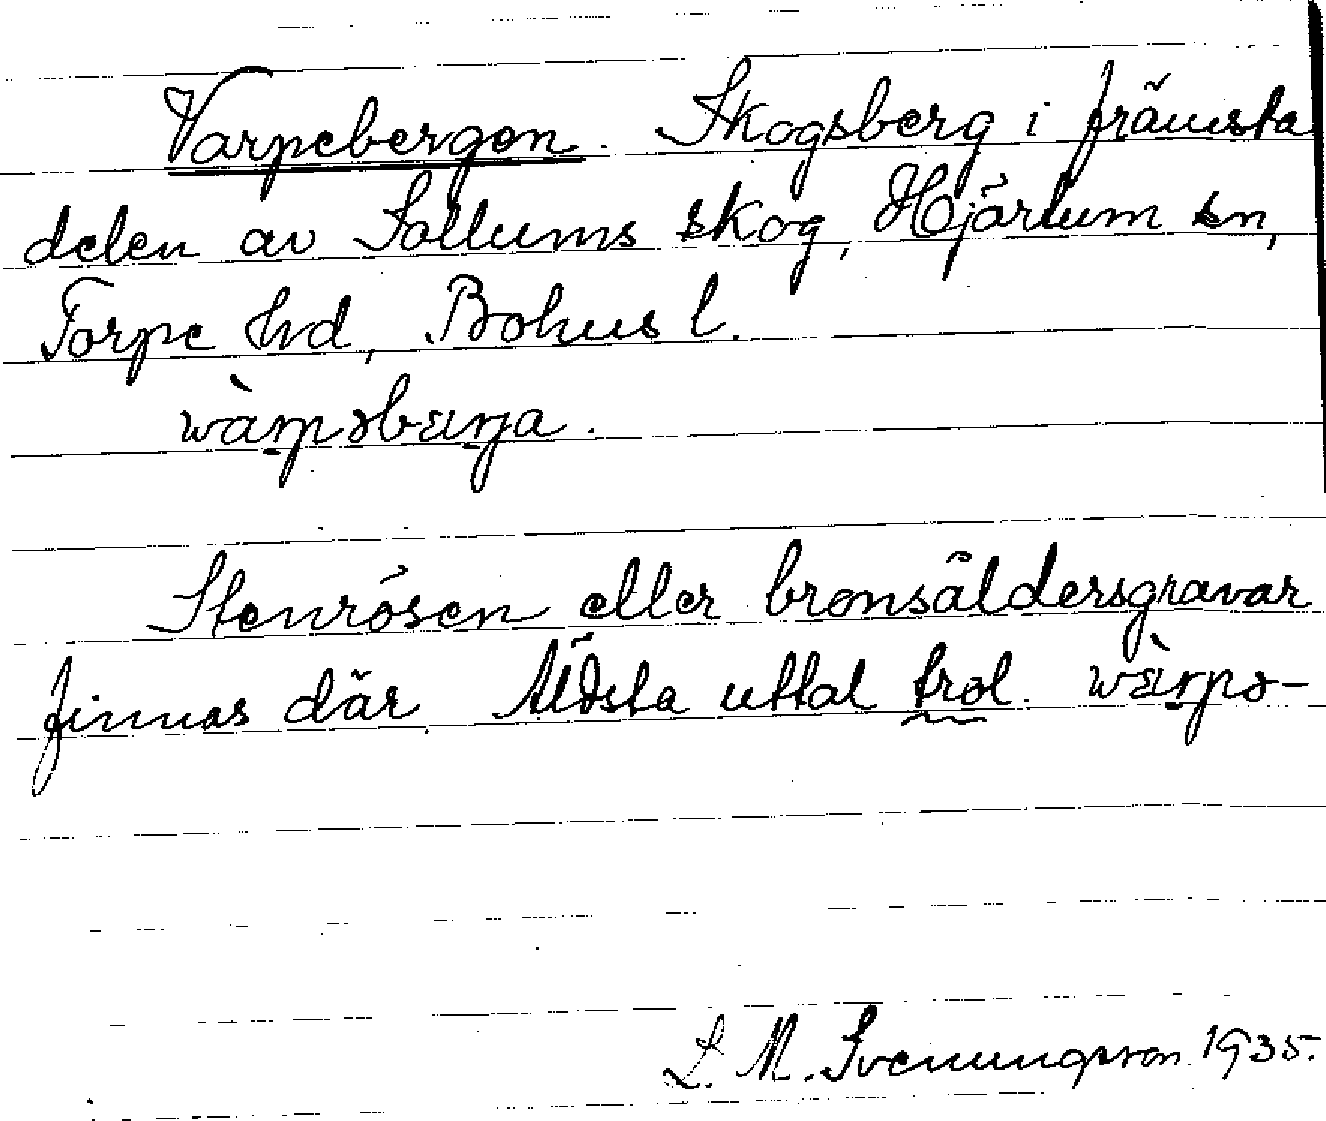 Varpebergen. Skogsberg i främsta
delen av Sollums skog, Hjärtum sn,
Torpe hd, Bohus l.
wàrpəbærja.
Stenrösen eller bronsåldersgravar
finnas där. Äldsta uttal trol. wæ̀rpə-
L. M. Svenungsson 1935.